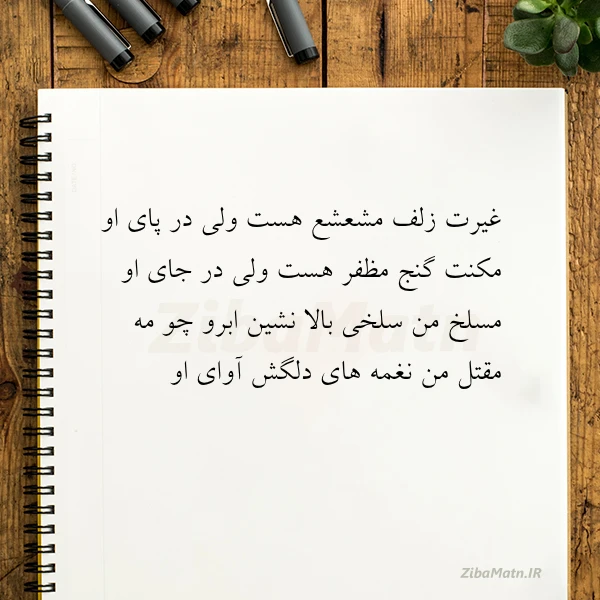 غیرت زلف مشعشع هست ولی در پای او
مکنت گنج مظفر هست ولی در جای او
مسلخ من سلخی بالا نشین ابرو چو مه
مقتل من نغمه های دلگش آوای او
ZibaMatn
ZibaMatn.IR